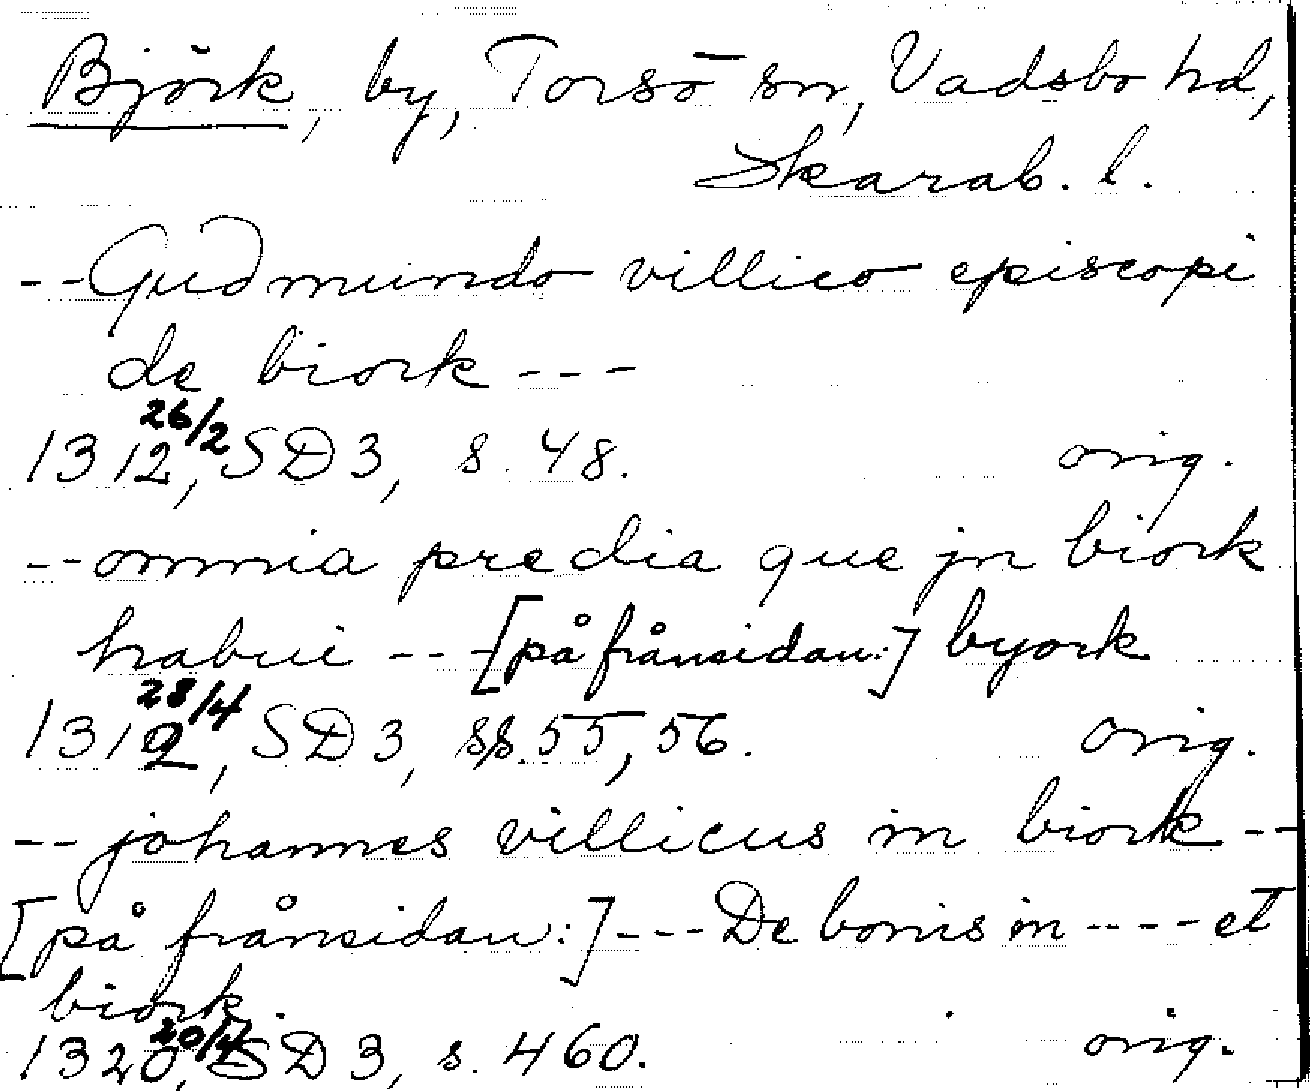 Björk, by, Torsö sn, Vadsbo hd,
Skarab. l.
--Gudmundo villico episcopi
de biork ---
1312 26/2, SD 3, s. 48. orig.
--omnia predia que jn biork
habui --- [på frånsidan:] byork
1312 28/4, SD 3, ss. 55, 56. orig.
--johannes villicus in biork --
[på frånsidan:] --- De bonis in ---- et
biork.
1320 20/4, SD 3, s. 460. orig.